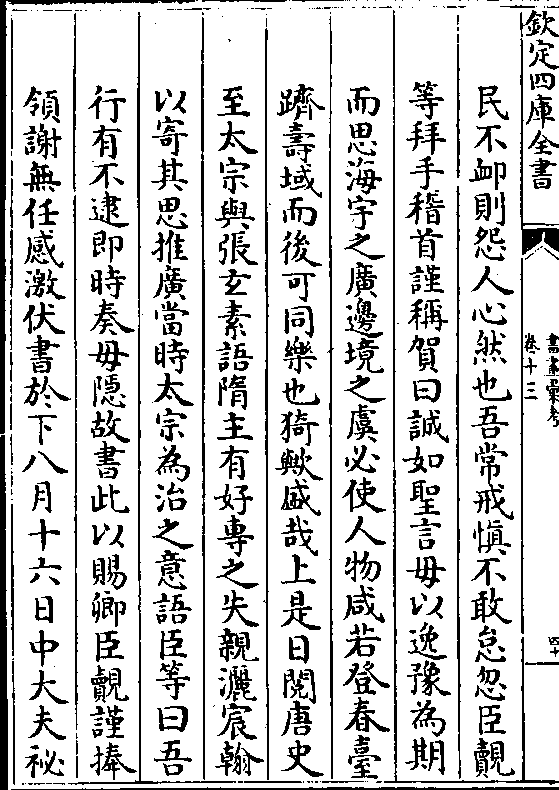 欽定四庫全書
書畫彙考
卷十三
四十
民不卹則怨人心然也吾常戒慎不敢怠忽臣覿
等拜手稽首謹稱賀曰誠如聖言毋以逸豫為期
而思海宇之廣邊境之虞必使人物咸若登春臺
躋壽域而後可同樂也猗歟盛哉上是日閱唐史
至太宗與張玄素語隋主有好專之失親灑宸翰
以寄其思推廣當時太宗為治之意語臣等曰吾
行有不逮即時奏毋隱故書此以賜卿臣覿謹捧
領謝無任感激伏書於下八月十六日中大夫祕